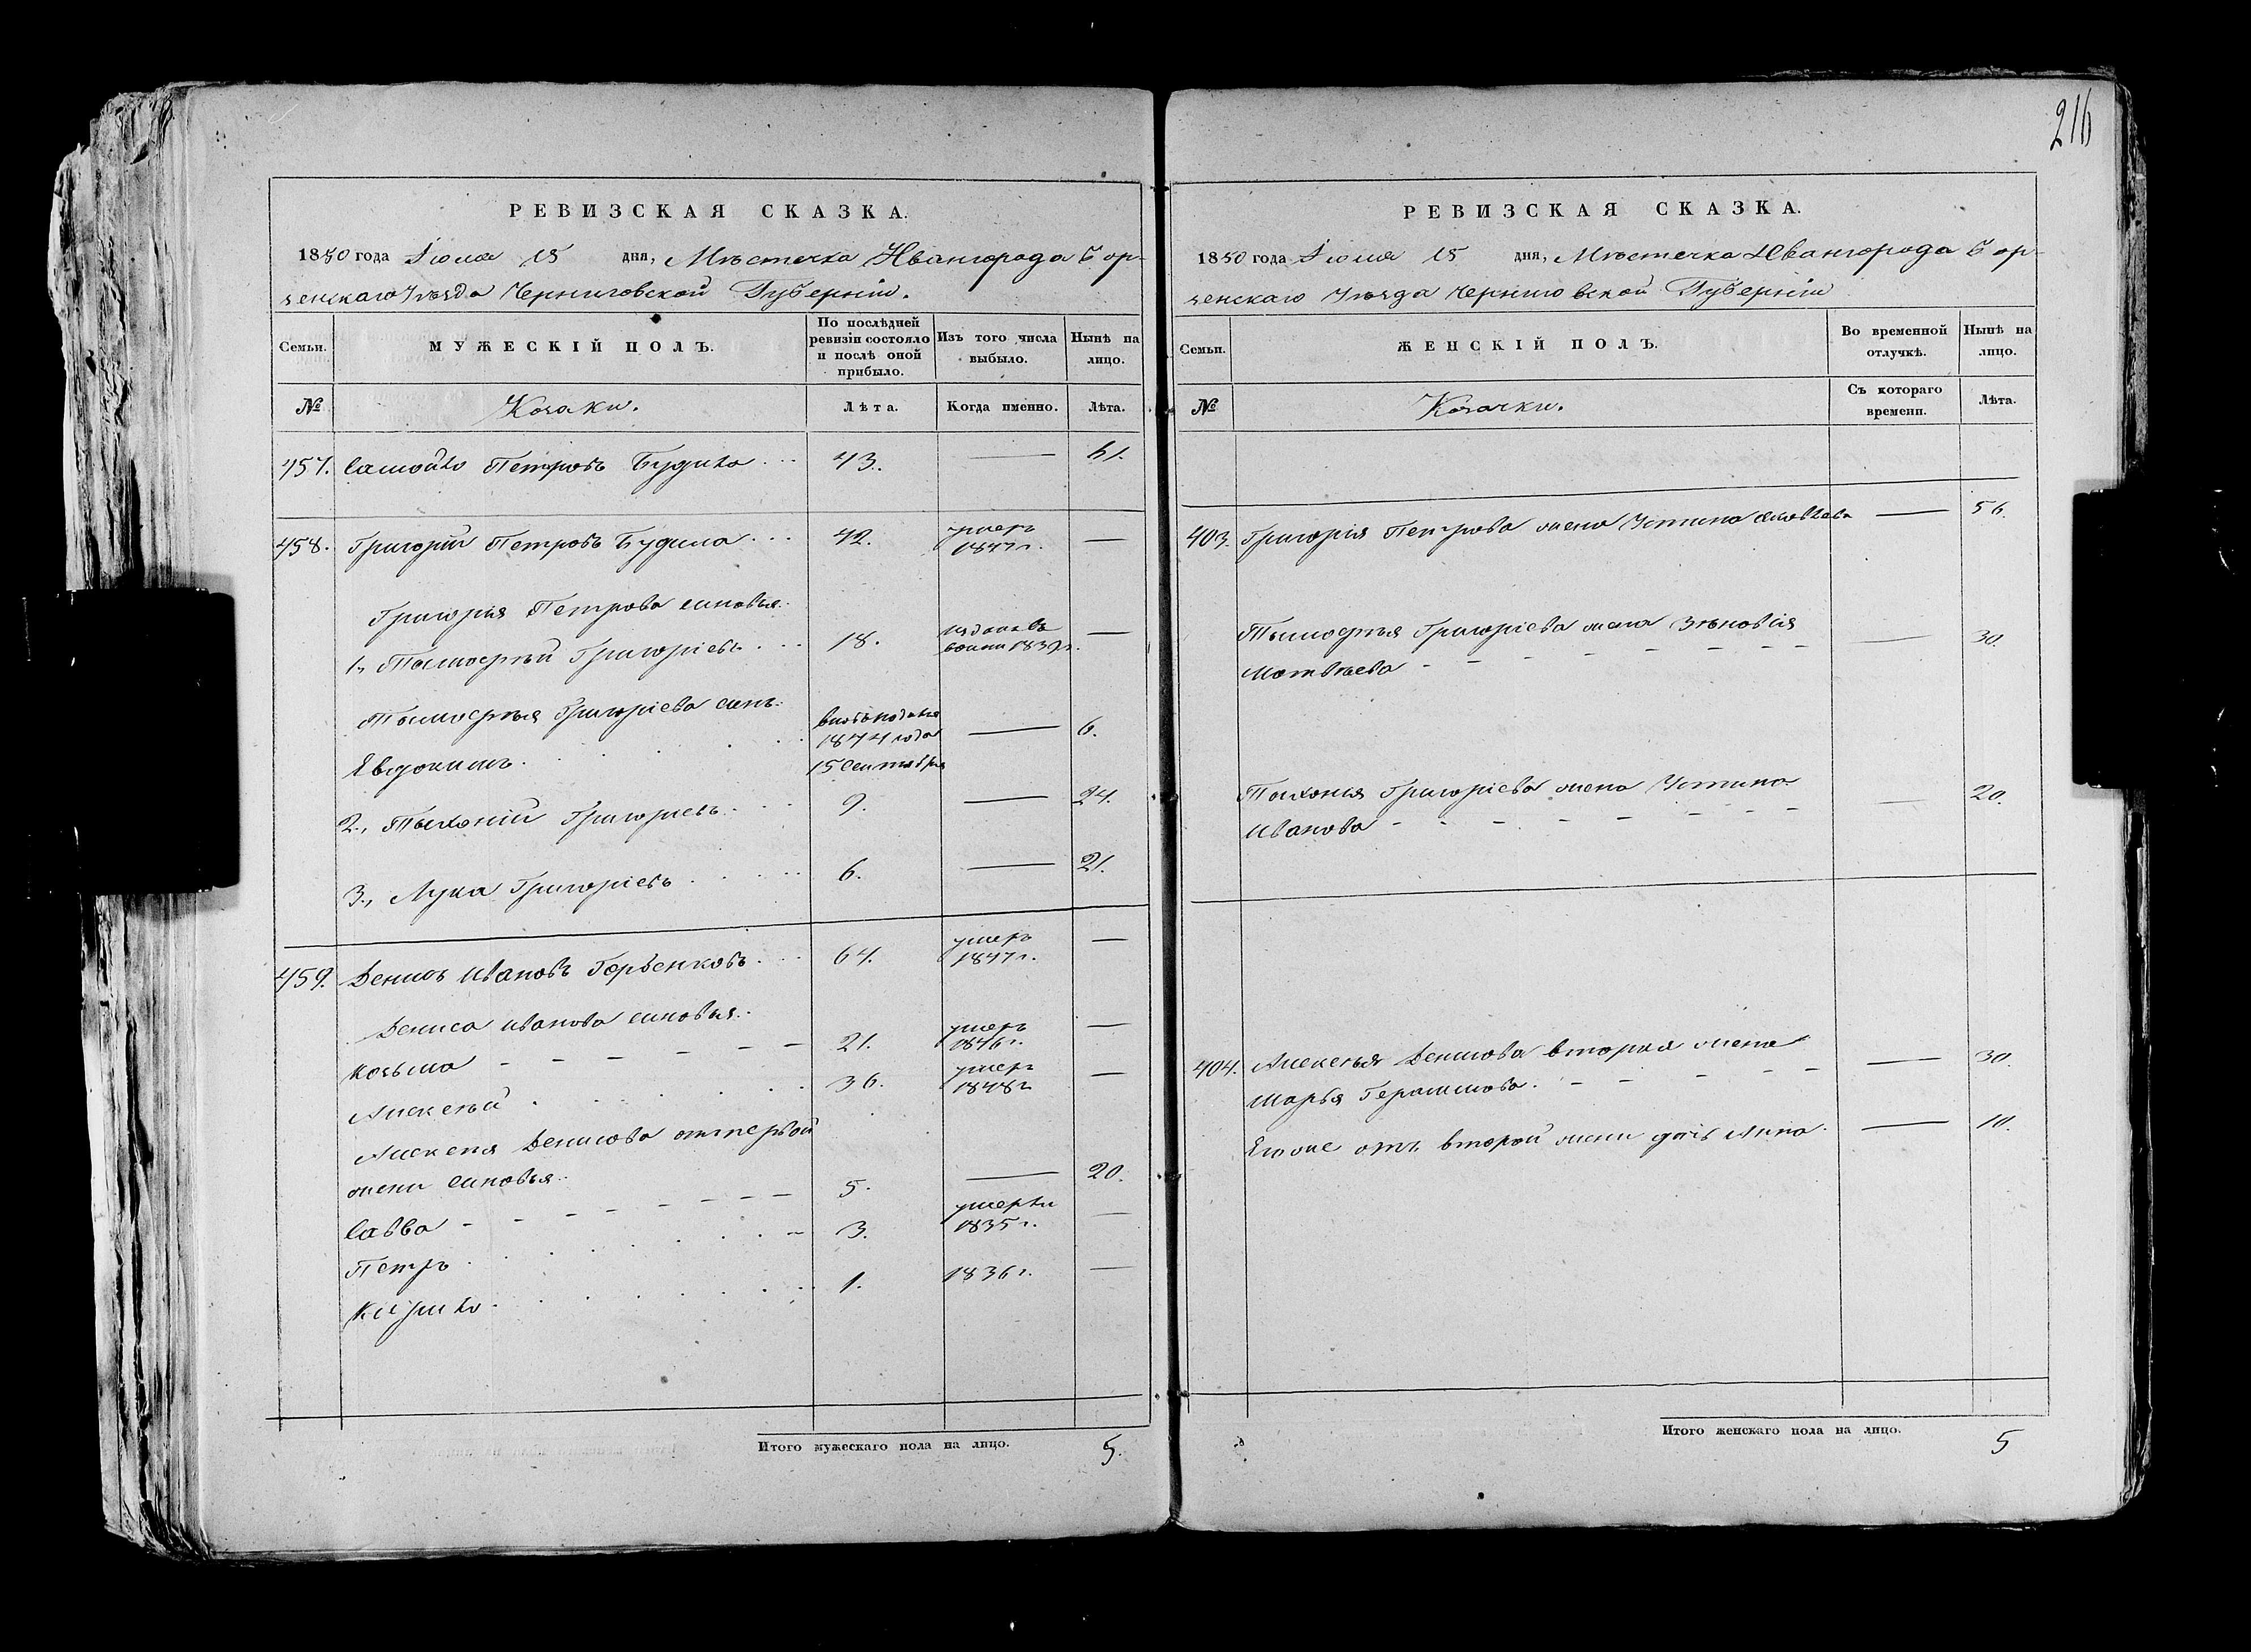 216
РЕВИЗСКАЯ СКАЗКА.
1850 года Іюля 15 дня, Мѣстечка Ивангорода Бор-
ченскаго Уѣзда Черниговской Губерніи.
Семьи. МУЖЕСКІЙ ПОЛЪ. По послѣдней ревизіи состояло и послѣ оной прибыло. Изъ того числа выбыло. Нынѣ на лицо.
№ Козаки. Лѣта. Когда именно. Лѣта.
457. Самойло Петровъ Будило 43. — 61.
458. Григорій Петровъ Будило 42. умеръ 1847 г. —
Григорія Петрова сыновья:
1., Тымофѣй Григоріевъ 18. 1839 г. —
Тымофѣя Григоріева сынъ:
Евдокимъ 1844 года 15 Сентября — 6.
2., Тыхоній Григоріевъ 9. — 24.
3., Лука Григоріевъ 6. — 21.
459. Денисъ Ивановъ Горбенковъ 64. умеръ 1847 г. —
Дениса Иванова сыновья:
Козьма 21. умеръ 1846 г. —
Алексѣй 36. умеръ 1848 г. —
Алексѣя Денисова отъ первой
жены сыновья:
Савва 5. — 20.
Петръ 3. умерли 1835 г. —
Кирило 1. 1836 г. —
Итого мужескаго пола на лицо. 5.
РЕВИЗСКАЯ СКАЗКА.
1850 года Іюля 15 дня, Мѣстечка Ивангорода Бор-
ченскаго Уѣзда Черниговской Губерніи
Семьи. ЖЕНСКІЙ ПОЛЪ. Во временной отлучкѣ. Нынѣ на лицо.
№ Козачки. Съ котораго времени. Лѣта.
403. Григорія Петрова жена Устина — 56.
Тымофѣя Григоріева жена Зѣновія
Матвѣева — 30.
Тыхонія Григоріева жена Устина
Иванова — 20.
404. Алексѣя Денисова вторая жена
Марья Герасимова — 30.
Егоже отъ второй жены дочь Анна — 10.
Итого женскаго пола на лицо. 5